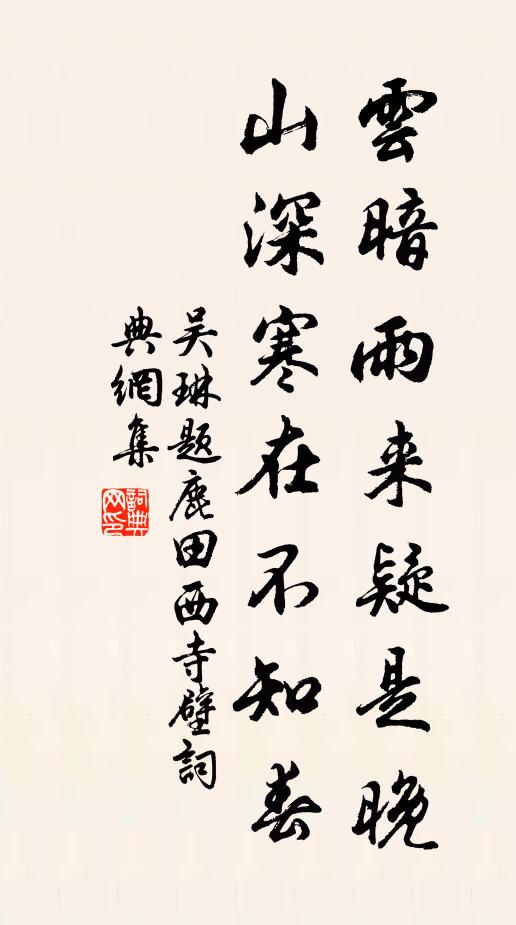 雲暗雨来疑是晚
山深寒在不知春
吴琳題鹿田西寺壁詞
典網集
詞典
网印